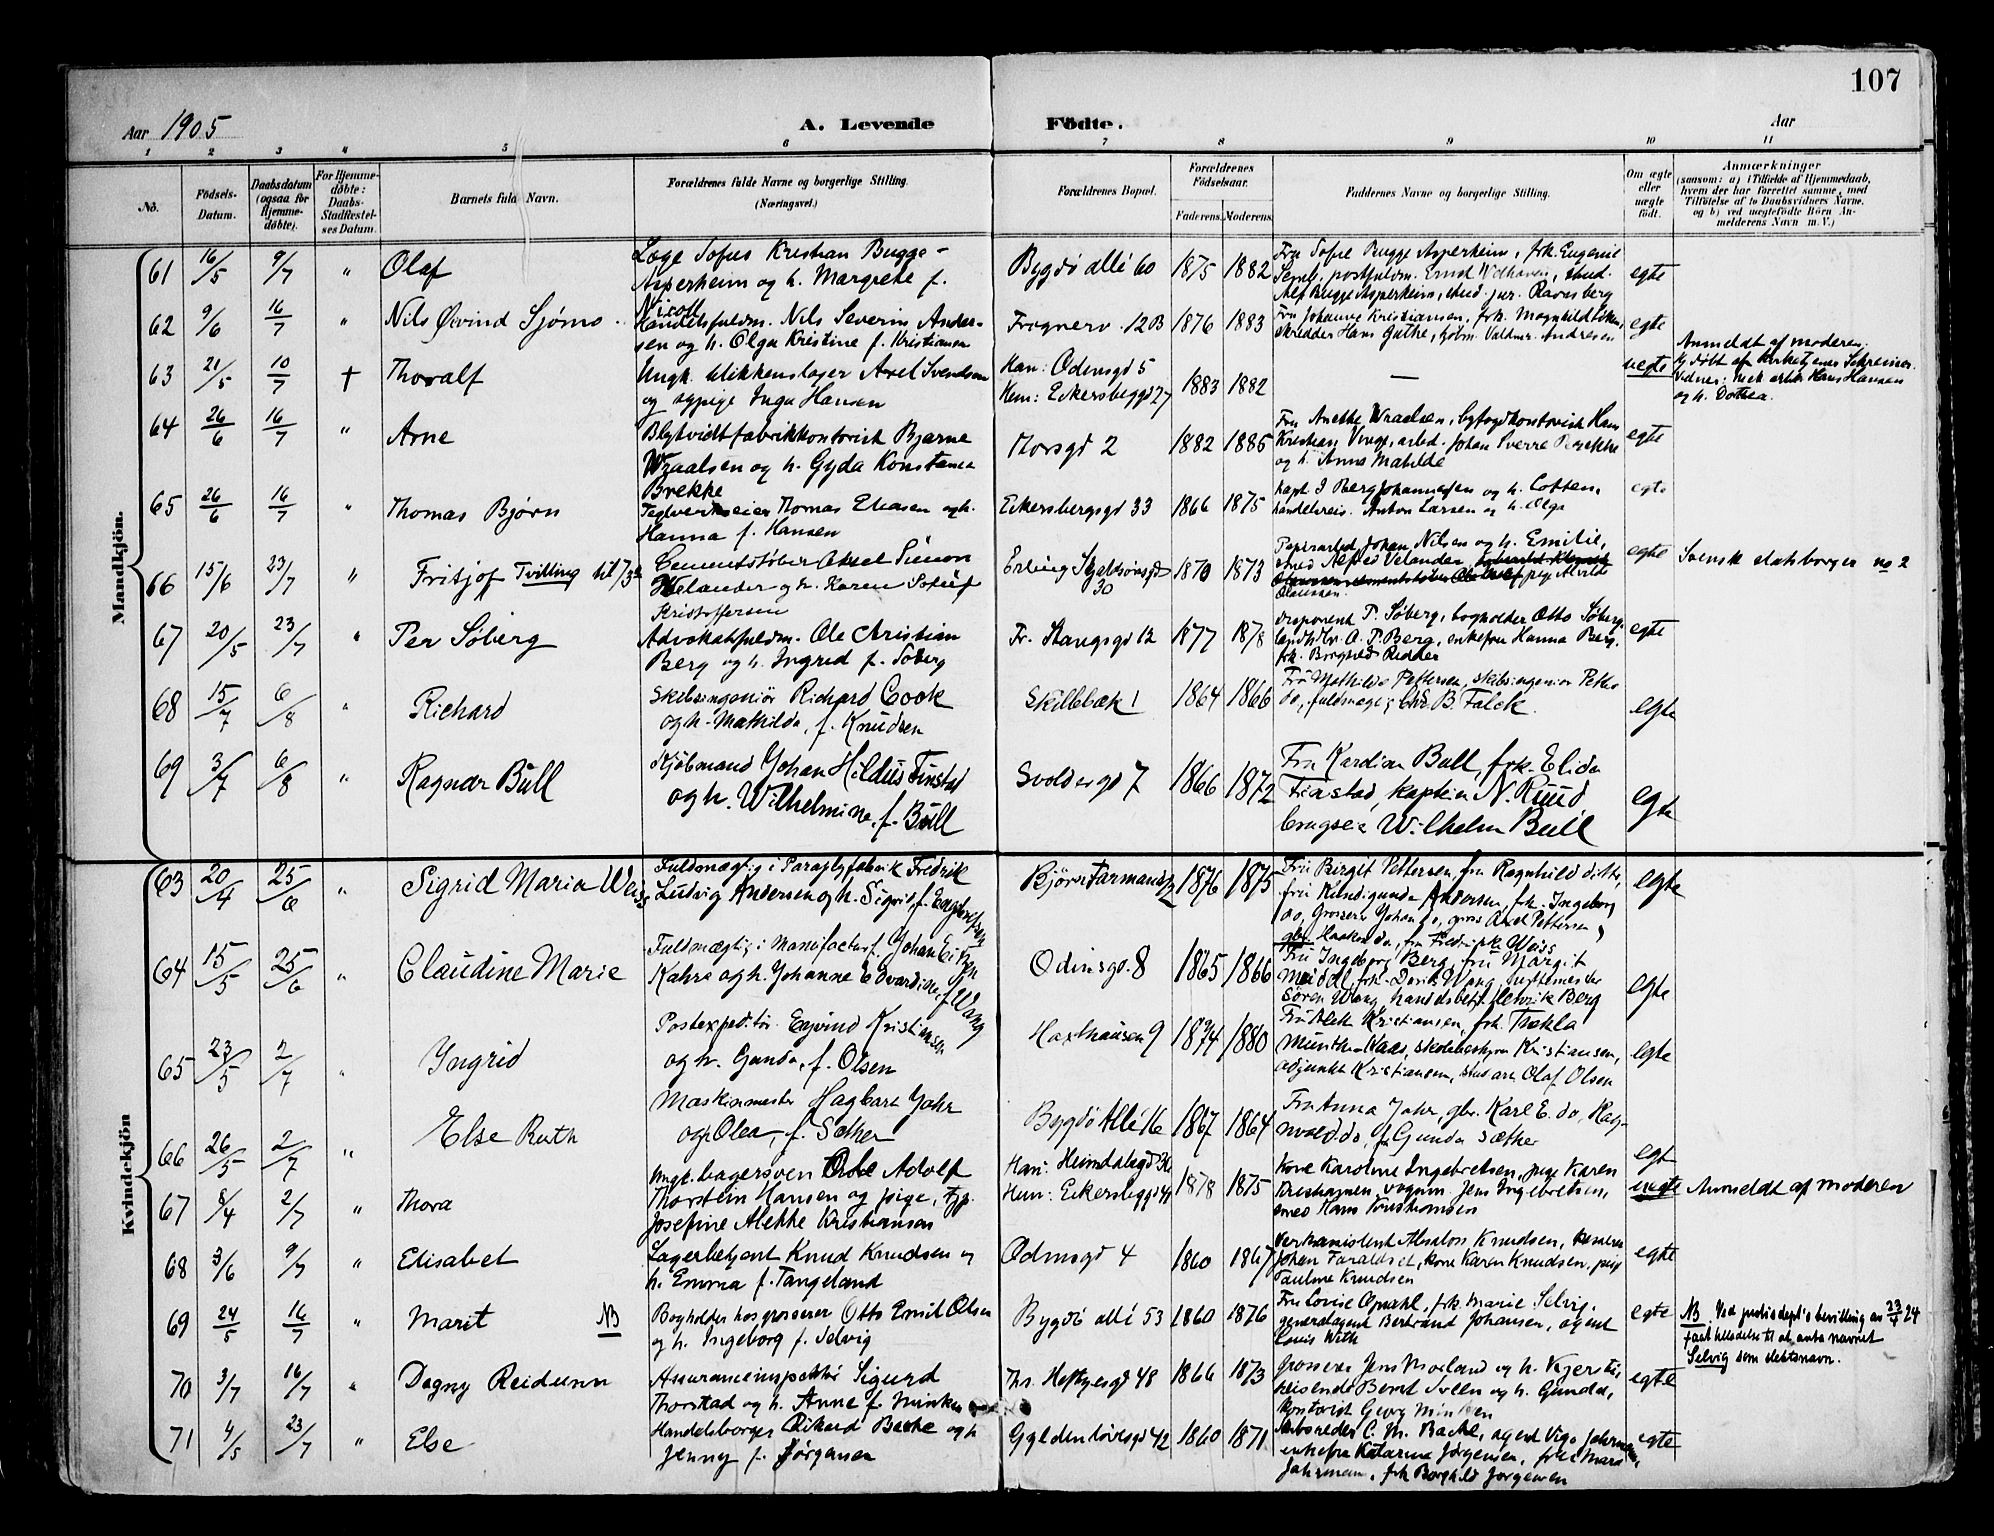 107
Aar 1905
A. Levende Födte.
Aar
1 2 3 4 5 6 7 8 9 10 11
No.
Födsels-Datum.
Daabsdatum (ogsaa for Hjemme-døbte).
For Hjemme-døbte: Daabs-Stadfæstel-ses Datum.
Barnets fulde Navn.
Forældrenes fulde Navne og borgerlige Stilling. (Næringsvei.)
Forældrenes Bopæl.
Forældrenes Födselsaar.
Faderens. Moderens.
Faddernes Navne og borgerlige Stilling.
Om ægte eller uægte födt.
Anmærkninger (saasom: a) i Tilfælde af Hjemmedaab, hvem der har forrettet samme, med Tilföielse af to Daabsvidners Navne, og b) ved uægtefödte Börn An-melderens Navn m. V.)
Mandkjön.
61 16/5 9/7 " Olaf
Læge Sofus Kristian Bugge-
Asperheim og h. Margrethe f.
Nicoll
Bygdö allé 60 1875 1882
Fru Sofie Bugge Asperheim, frk. Eugenie
postfuldm. Ernst Welhaven, stud.
Alf Bugge Asperheim, stud. jur. Ravnsberg
egte
62 9/6 16/7 " Nils Øivind Sjømo
Handelsfuldm. Nils Severin Ander-
sen og h. Olga Kristine f. Kristiansen
Frognerv. 12B 1876 1883
Fru Johanne Kristiansen, frk. Magnhild
skredder Hans Gathe, kjøbm. Valdmr. Andresen
egte
63 21/5 10/7 † Thoralf
Ungk. blikkenslager Axel Svendsen
og sypige Inga Hansen
Han: Odinsgd 5
Hun: Eckersbergsgd 27
1883 1882
—
uegte
Anmeldt af moderen.
Hj. døbt af
Vidner: Hans Hansen
og h. Dothea.
64 26/6 16/7 " Arne
Blyhvidtfabrikkontorist Bjarne
Wraalsen og h. Gyda Konstance
Brekke
Thorsgd 2 1882 1885
Fru Anette Wraalsen, byfogdkontorist Hans
Kristian arbed. Johan Sverre Brekke
og h. Anna Matilde
egte
65 26/6 16/7 " Thomas Bjørn
Teglverkseier Thomas Eliasen og h.
Hanna f. Hansen
Eckersbergsgd 33 1866 1875
kapt. I Berg Johannesen og h. Lotten,
handelsreis. Anton Larsen og h. Olga
egte
66 15/6 23/7 " Fritjof Tvilling til 73
Cementstøber Aksel Simon
Helander og h. Karen
Kristoffersen
Erling Skjalgsønsgd 30 1870 1873
Papirarbed. Johan Nilsen og h. Emilie,
smed Alfred Velander,
pige Alvilde
Olaussen.
egte
Svensk statsborger no 2
67 20/5 23/7 " Per Søberg
Advokatfuldm. Ole Christian
Berg og h. Ingrid f. Søberg
Fr. Stangsgd 12 1877 1878
disponent P. Søberg, bogholder Otto Søberg,
landhdlr. O. P. Berg, enkefru Hanna Berg,
frk. Borghild Ridder
egte
68 15/7 6/8 " Richard
Skibsingeniør Richard Cook
og h. Mathilde, f. Knudsen
Skillebæk 1 1864 1866
Fru Mathilde Pettersen, skibsingeniør Petter
do, fuldmægtig Chr. B. Falck.
egte
69 3/7 6/8 " Ragnar Bull
Kjøbmand Johan Hildus Finstad
og h. Wilhelmine, f. Bull
Svoldergd 7 1866 1872
Fru Kardine Bull, frk. Elida
Finstad, kaptein N. Ruud
brugseier Wilhelm Bull
egte
Kvindekjön
63 20/4 25/6 " Sigrid Maria Weiss
Fuldmægtig i Paraplyfabrik Fredrik
Ludvig Andersen og h. Sigrid, f. Engebretsen
Bjørn Farmanns 1876 1875
Fru Birgit Pettersen, fru Ragnhild ditto,
fru Kundigunda Andersen, frk. Ingeborg
do, Grosserer Johan do, gross. Axel Pettersen,
Haakon do, fru Fredrikke Weiss
egte
64 15/5 25/6 " Claudine Marie
Fuldmægtig i Manufacturf. Johan
Kahrs og h. Johanne Edvardine f. Wang
Odinsgd. 8 1865 1866
Fru Ingeborg Berg, fru Margit
frk. Dorth. Wang, hyttemester
Sören Wang, handelsbetj. Henrik Berg
egte
65 23/5 2/7 " Yngrid
Postexpeditør Eyvind Kristiansen
og h. Gunda, f. Olsen
Haxthausen 9 1874 1880
Fru Alek Kristiansen, frk. Thekla
Munthe-Kaas, skolebestyrer Kristiansen,
adjunkt Kristiansen, stud art Olaf Olsen
egte
66 26/5 2/7 " Else Ruth
Maskinmester Hagbart Jahr
og h. Olea, f. Sæther
Bygdö Allé 16 1867 1864
Fru Anna Jahr, gbr. Karl E. do, Rag-
nvald do, fr. Gunda Sæther
egte
67 8/4 2/7 " Thora
Ungk. bagersven Adolf
Thorstein Hansen og pige, tj.
Josefine Alette Kristiansen
Han: Heimdalsgd 36
Hun: Eckersbggd 44
1878 1875
Kone Karoline Ingebretsen, pige Karen
Kristiansen, vognm. Jens Ingebretsen,
smed Hans Kristiansen
uegte
Anmeldt af moderen
68 3/6 9/7 " Elisabet
Lagerbetjent Knud Knudsen og
h. Emma f. Tangeland
Odinsgd 4 1860 1867
Verkanistent Absalon Knudsen,
Johan kone Karen Knudsen, pige
Pauline Knudsen
egte
69 24/5 16/7 " Marit NB
Bogholder hos grosserer Otto Emil Olsen
og h. Ingeborg f. Selvig
Bygdö allé 53 1860 1876
Fru Lovise Opdahl, frk. Marie Selvig,
generalagent Bertrand Johansen, agent
Louis With
egte
NB. Ved justisdept's bevilling av 23/7 24
faat tilladelse til at anta navnet
Selvig som slektsnavn.
70 3/7 16/7 " Dagny Reidunn
Assuranceinspektör Sigurd
Thorstad og h. Anne f. Minken
Th. Heftyesgd 48 1866 1873
Grosserer Jens Morland og h. Kjersti,
reisende Bernt Sveen og h. Gunda,
kontorist Georg Minken
egte
71 4/5 23/7 " Else
Handelsborger Rikard Backe og h
Jenny f. Jörgensen
Gyldenlövesgd 42 1860 1871
C. M. Backe, agent Vigo Jahrmann,
enkefru Katarina Jörgensen, frk. Mara
Jahrmann, frk Borghild Jorgensen
egte